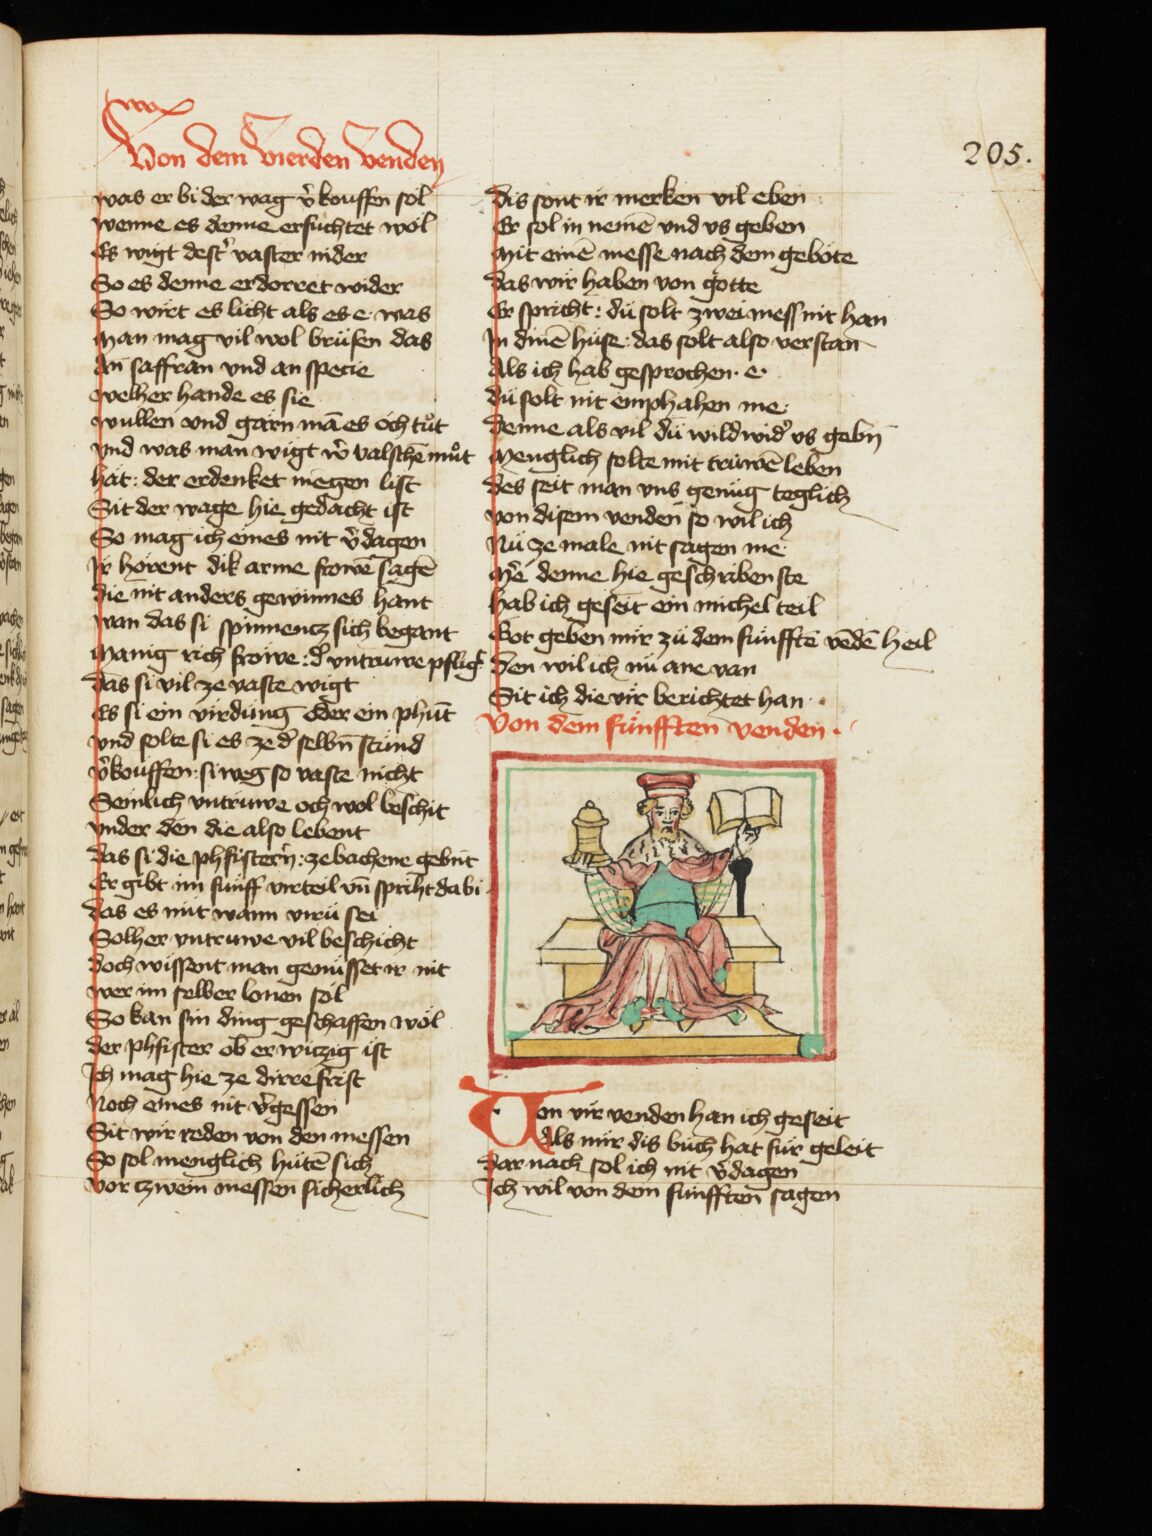 Von dem vierden venden
205.
was er bi der wag v̾kouffen sol
wenne es denne ersuchtet wol
Es wigt dest̾ vaster nider
So es denne erdorret wider
So wirt es licht als es e was
Man mag vil wol brüfen das
An saffran vnd an specie
welher hande es sie
wullen vnd garn mā es och tůt
vnd was man wigt valschē můt
hat : der erdenket mēgen list
Sit der wage hie gedacht ist
So mag ich eines nit v̾dagen
Ir hörent dik arme frowē sagē
die nit anders gewinnes hant
wan das si spinnentz sich begant
Manig rich frowe : d̾ vntruwe pfligt
das si vil ze vaste wigt
Es si ein virdung oder ein phūt
vnd solte si es ze d̾ selbn̄ stund
v̾kouffen : si weg so vaste nicht
Semlich vntruwe och wol beschit
vnder den die also lebent
das si die phfistern̄ : ze bachene gebnt
Er gibt im fünff virteil vn̄ spricht dabi
das es nüt wann virü sei
Solher vntruwe vil beschicht
doch wissent man genüsset ir nit
wer im selber lonen sol
So kan sin ding geschaffen wol
der phfister ob er witzig ist
Ich mag hie ze dirre frist
Noch eines nit v̾gessen
Sit wir reden von den messen
So sol menglich hütē sich
vor tzwein messen sicherlich
dis sont ir merken vil eben
Er sol in nemē vnd vs geben
Mit einē messe nach dem gebote
das wir haben von gotte
Er spricht : dü solt zwei mess nit han
In dinē huse : das solt also verstan
Als ich hab gesprochen · e ·
dü solt nit emphahen me
denne als vil dü wild wid̾ vs gebn̄
Menglich solte mit trüwē leben
des seit man vns genüg teglich
von disem venden so wil ich
Nü ze male nit sagen me
Mē denne hie geschriben ste
hab ich geseit ein michel teil
Got geben mir zü dem fünfftē vēdē heil
den wil ich nü ane van
Sit ich die vir berichtet han ·
Von dem fünfften venden ·
Von vir venden han ich geseit
Als mir dis büch hat für geleit
Dar nach sol ich nit v̾dagen
Ich wil von dem fünfften sagen